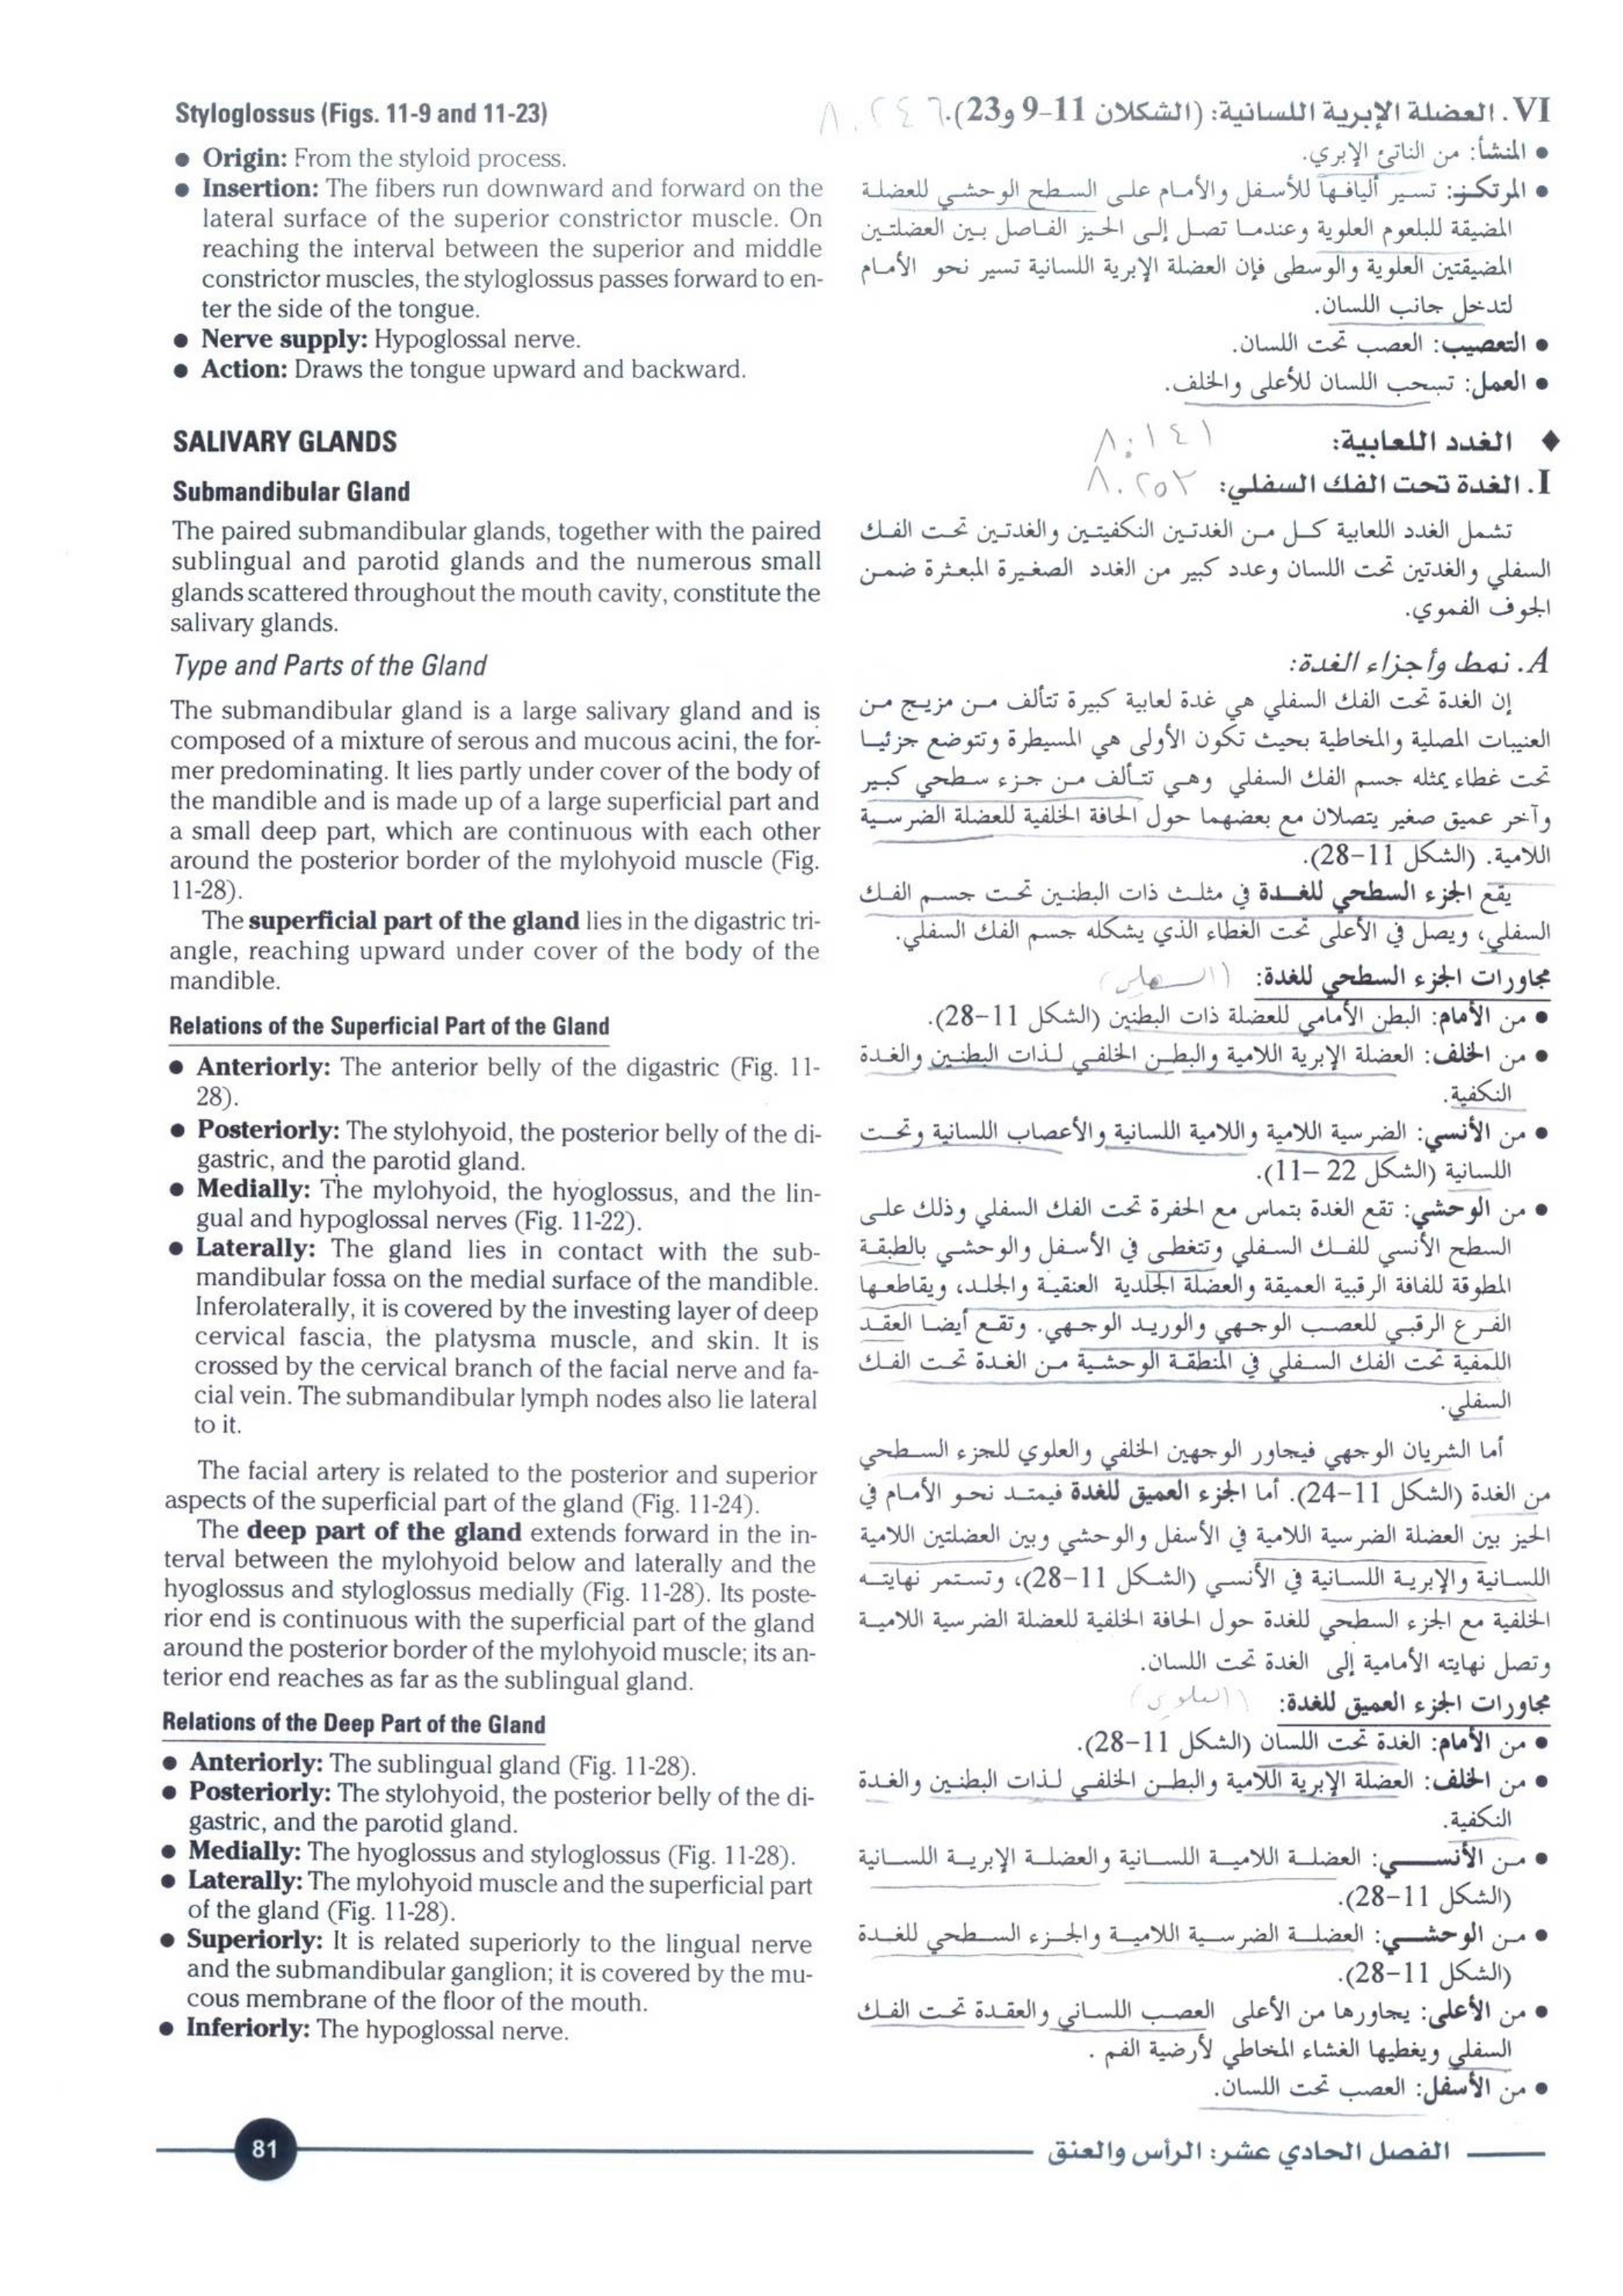 Styloglossus (Figs. 11-9 and 11-23)
● Origin: From the styloid process.
● Insertion: The fibers run downward and forward on the
lateral surface of the superior constrictor muscle. On
reaching the interval between the superior and middle
constrictor muscles, the styloglossus passes forward to en-
ter the side of the tongue.
● Nerve supply: Hypoglossal nerve.
● Action: Draws the tongue upward and backward.
SALIVARY GLANDS
Submandibular Gland
The paired submandibular glands, together with the paired
sublingual and parotid glands and the numerous small
glands scattered throughout the mouth cavity, constitute the
salivary glands.
Type and Parts of the Gland
The submandibular gland is a large salivary gland and is
composed of a mixture of serous and mucous acini, the for-
mer predominating. It lies partly under cover of the body of
the mandible and is made up of a large superficial part and
a small deep part, which are continuous with each other
around the posterior border of the mylohyoid muscle (Fig.
11-28).
The superficial part of the gland lies in the digastric tri-
angle, reaching upward under cover of the body of the
mandible.
Relations of the Superficial Part of the Gland
● Anteriorly: The anterior belly of the digastric (Fig. 11-
28).
● Posteriorly: The stylohyoid, the posterior belly of the di-
gastric, and the parotid gland.
● Medially: The mylohyoid, the hyoglossus, and the lin-
gual and hypoglossal nerves (Fig. 11-22).
● Laterally: The gland lies in contact with the sub-
mandibular fossa on the medial surface of the mandible.
Inferolaterally, it is covered by the investing layer of deep
cervical fascia, the platysma muscle, and skin. It is
crossed by the cervical branch of the facial nerve and fa-
cial vein. The submandibular lymph nodes also lie lateral
to it.
The facial artery is related to the posterior and superior
aspects of the superficial part of the gland (Fig. 11-24).
The deep part of the gland extends forward in the in-
terval between the mylohyoid below and laterally and the
hyoglossus and styloglossus medially (Fig. 11-28). Its poste-
rior end is continuous with the superficial part of the gland
around the posterior border of the mylohyoid muscle; its an-
terior end reaches as far as the sublingual gland.
Relations of the Deep Part of the Gland
● Anteriorly: The sublingual gland (Fig. 11-28).
● Posteriorly: The stylohyoid, the posterior belly of the di-
gastric, and the parotid gland.
● Medially: The hyoglossus and styloglossus (Fig. 11-28).
● Laterally: The mylohyoid muscle and the superficial part
of the gland (Fig. 11-28).
● Superiorly: It is related superiorly to the lingual nerve
and the submandibular ganglion; it is covered by the mu-
cous membrane of the floor of the mouth.
● Inferiorly: The hypoglossal nerve.
VI. العضلة الإبرية اللسانية: (الشكلان 11-9 و23).
● المنشأ: من الناتئ الإبري.
● المرتكز: تسير أليافها للأسفل والأمام على السطح الوحشي للعضلة
المضيقة للبلعوم العلوية وعندما تصل إلى الحيز الفاصل بين العضلتين
المضيقتين العلوية والوسطى فإن العضلة الإبرية اللسانية تسير نحو الأمام
لتدخل جانب اللسان.
● التعصيب: العصب تحت اللسان.
● العمل: تسحب اللسان للأعلى والخلف.
♦ الغدد اللعابية: ٨٠١٤١
I. الغدة تحت الفك السفلي: ٨٠٢٥٢
تشمل الغدد اللعابية كل من الغدتين النكفيتين والغدتين تحت الفك
السفلي والغدتين تحت اللسان وعدد كبير من الغدد الصغيرة المبعثرة ضمن
الجوف الفموي.
A. نمط وأجزاء الغدة:
إن الغدة تحت الفك السفلي هي غدة لعابية كبيرة تتألف من مزيج من
العنيبات المصلية والمخاطية بحيث تكون الأولى هي المسيطرة وتتوضع جزئيا
تحت غطاء يمثله جسم الفك السفلي وهي تتألف من جزء سطحي كبير
وآخر عميق صغير يتصلان مع بعضهما حول الحافة الخلفية للعضلة الضرسية
اللامية. (الشكل 11-28).
يقع الجزء السطحي للغدة في مثلث ذات البطنين تحت جسم الفك
السفلي، ويصل في الأعلى تحت الغطاء الذي يشكله جسم الفك السفلي.
مجاورات الجزء السطحي للغدة:
● من الأمام: البطن الأمامي للعضلة ذات البطنين (الشكل 11-28).
● من الخلف: العضلة الإبرية اللامية والبطن الخلفي لذات البطنين والغدة
النكفية.
● من الأنسي: الضرسية اللامية واللامية اللسانية والأعصاب اللسانية وتحت
اللسانية (الشكل 22 –11).
● من الوحشي: تقع الغدة بتماس مع الحفرة تحت الفك السفلي وذلك على
السطح الأنسي للفك السفلي وتتغطى في الأسفل والوحشي بالطبقة
المطوقة للفافة الرقبية العميقة والعضلة الجلدية العنقية والجلد، ويقاطعها
الفرع الرقبي للعصب الوجهي والوريد الوجهي. وتقع أيضا العقد
اللمفية تحت الفك السفلي في المنطقة الوحشية من الغدة تحت الفك
السفلي.
أما الشريان الوجهي فيجاور الوجهين الخلفي والعلوي للجزء السطحي
من الغدة (الشكل 11-24). أما الجزء العميق للغدة فيمتد نحو الأمام في
الحيز بين العضلة الضرسية اللامية في الأسفل والوحشي وبين العضلتين اللامية
اللسانية والإبرية اللسانية في الأنسي (الشكل 11-28)، وتستمر نهايته
الخلفية مع الجزء السطحي للغدة حول الحافة الخلفية للعضلة الضرسية اللامية
وتصل نهايته الأمامية إلى الغدة تحت اللسان.
مجاورات الجزء العميق للغدة: (العلوي)
● من الأمام: الغدة تحت اللسان (الشكل 11-28).
● من الخلف: العضلة الإبرية اللامية والبطن الخلفي لذات البطنين والغدة
النكفية.
● من الأنسي: العضلة اللامية اللسانية والعضلة الإبرية اللسانية
(الشكل 11-28).
● من الوحشي: العضلة الضرسية اللامية والجزء السطحي للغدة
(الشكل 11-28).
● من الأعلى: يجاورها من الأعلى العصب اللساني والعقدة تحت الفك
السفلي ويغطيها الغشاء المخاطي لأرضية الفم .
● من الأسفل: العصب تحت اللسان.
الفصل الحادي عشر: الرأس والعنق
81